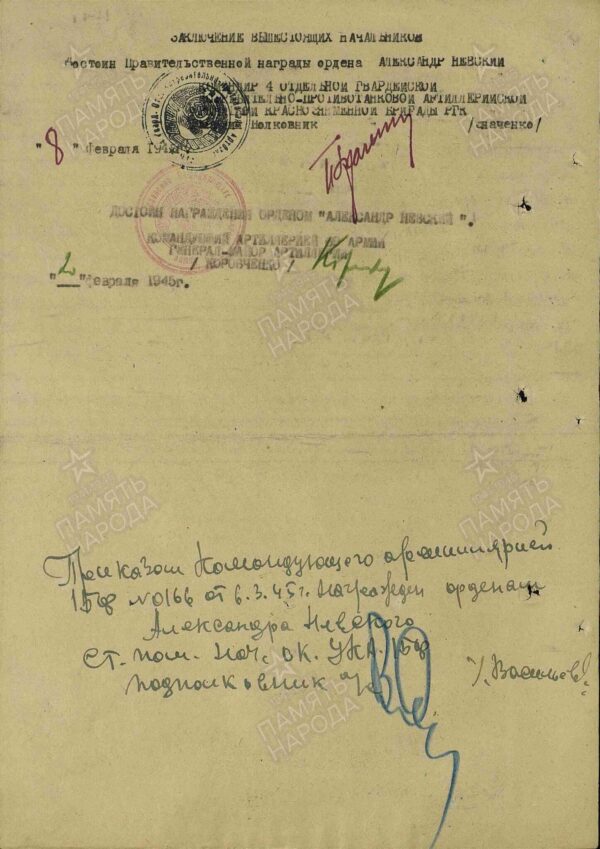 ЗАКЛЮЧЕНИЕ ВЫШЕСТОЯЩИХ НАЧАЛЬНИКОВ
Достоин Правительственной награды ордена АЛЕКСАНДР НЕВСКИЙ
КОМАНДИР 4 ОТДЕЛЬНОЙ ГВАРДЕЙСКОЙ
ПРОТИВОТАНКОВОЙ АРТИЛЛЕРИЙСКОЙ
КРАСНОЗНАМЕННОЙ БРИГАДЫ РГК
Полковник
"8" февраля
ДОСТОИН НАГРАЖДЕНИЯ ОРДЕНОМ "АЛЕКСАНДР НЕВСКИЙ".
КОМАНДУЮЩИЙ АРТИЛЛЕРИЕЙ АРМИИ
ГЕНЕРАЛ-МАЙОР АРТИЛЛЕРИИ
/ КОРОВЧЕНКО /
февраля 1945г.
Приказом Командующего артиллерией
1 Бф №0166 от 6.3.45г. награжден орденом
Александра Невского
Ст. пом. нач. ок. УКА 1 Бф
подполковник
ПАМЯТЬ НАРОДА
ПАМЯТЬ НАРОДА
ПАМЯТЬ НАРОДА
ПАМЯТЬ НАРОДА
ПАМЯТЬ НАРОДА
ПАМЯТЬ НАРОДА